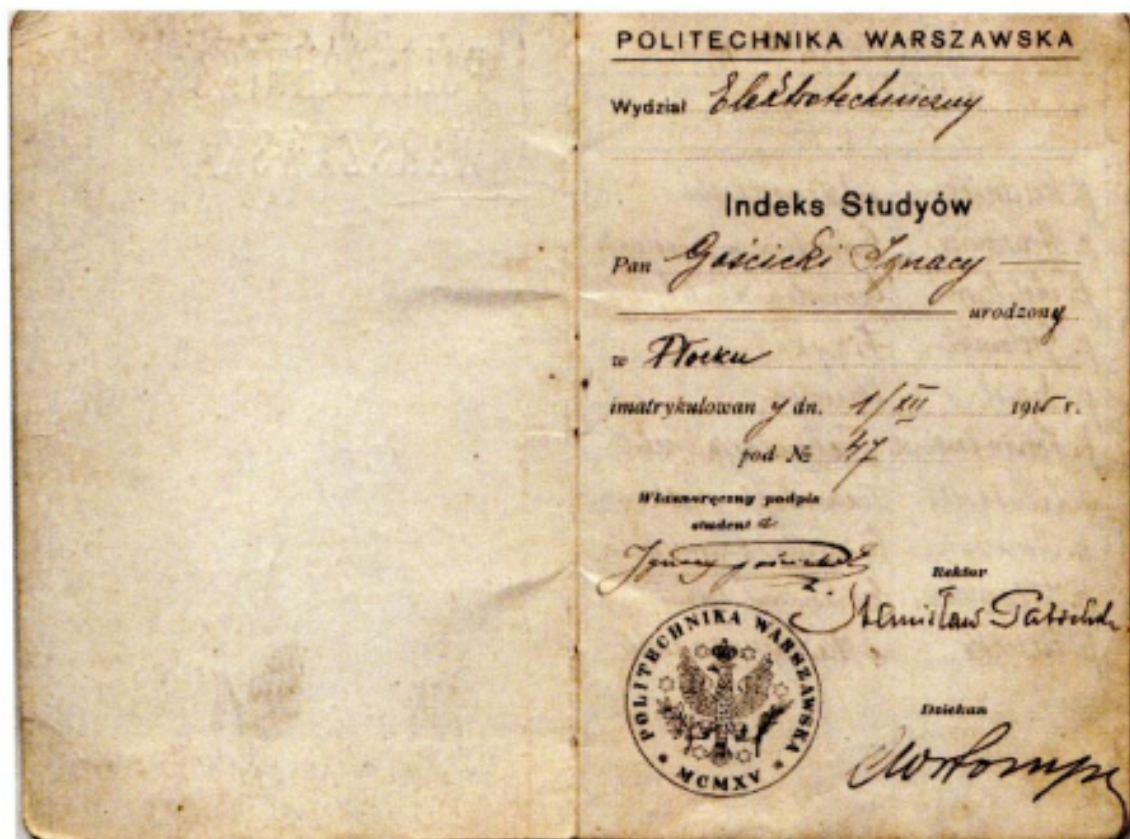 POLITECHNIKA WARSZAWSKA
Wydział Elektrotechniczny
Indeks Studyów
Pan Gościcki Ignacy
urodzony
w Płocku
imatrykulowany dn. 1/XII 1915 r.
pod № 47
Własnoręczny podpis
studenta
Ignacy Gościcki
Rektor
Stanisław Patschke
POLITECHNIKA WARSZAWSKA
MCMXV
Dziekan